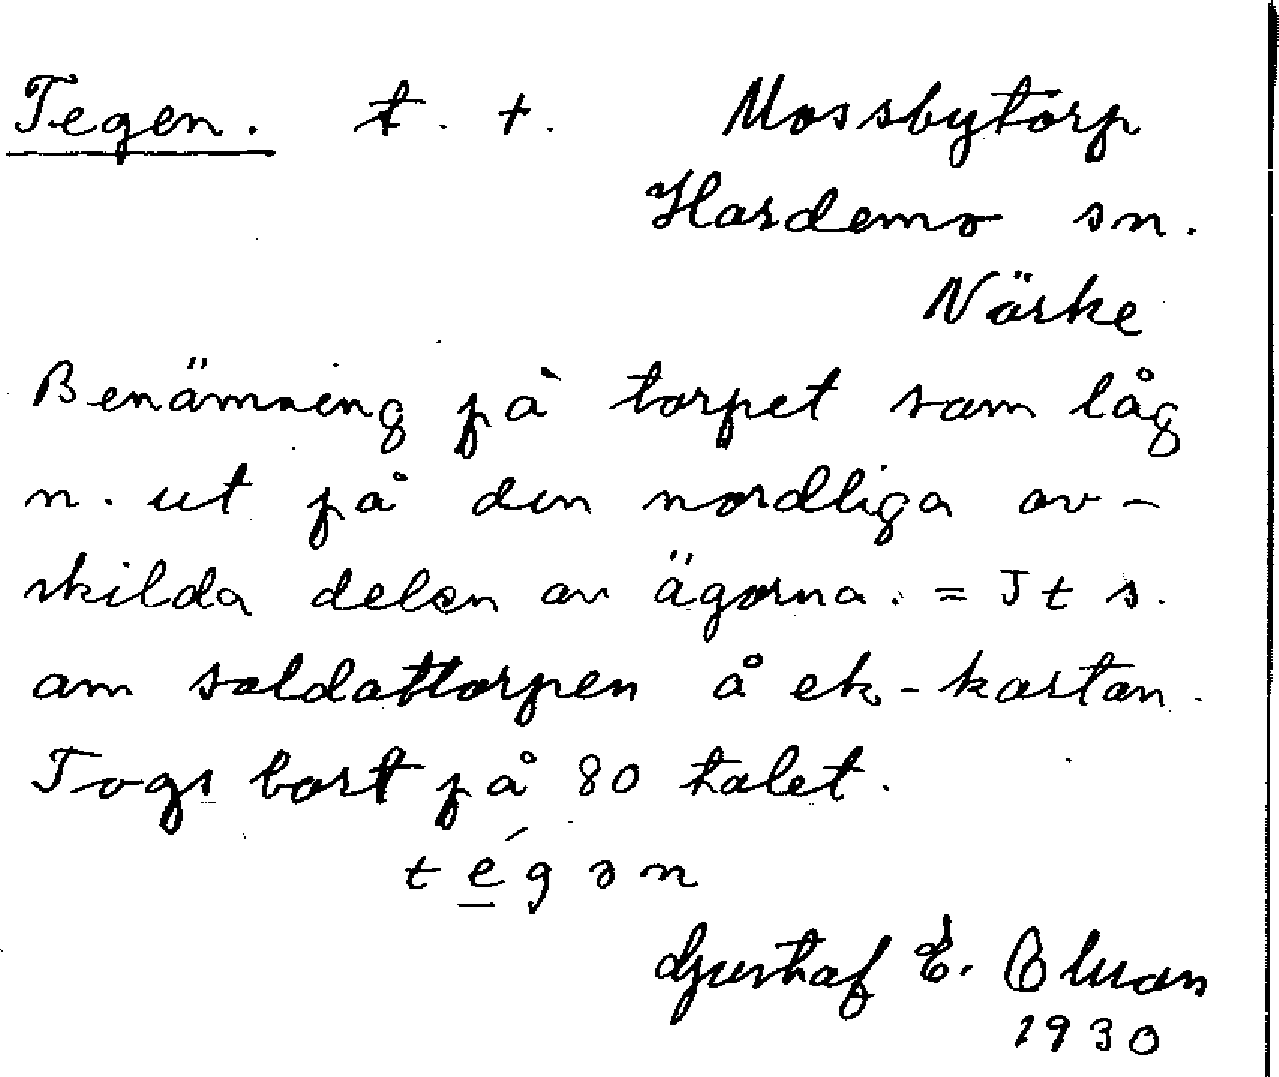 Tegen. t. †. Mossbytorp
Hardemo sn.
Närke
Benämning på torpet som låg
n. ut på den nordliga av-
skilda delen av ägorna. = J t s.
om soldattorpen å ek-kartan.
Togs bort på 80 talet.
tégən
Gustaf E.
1930